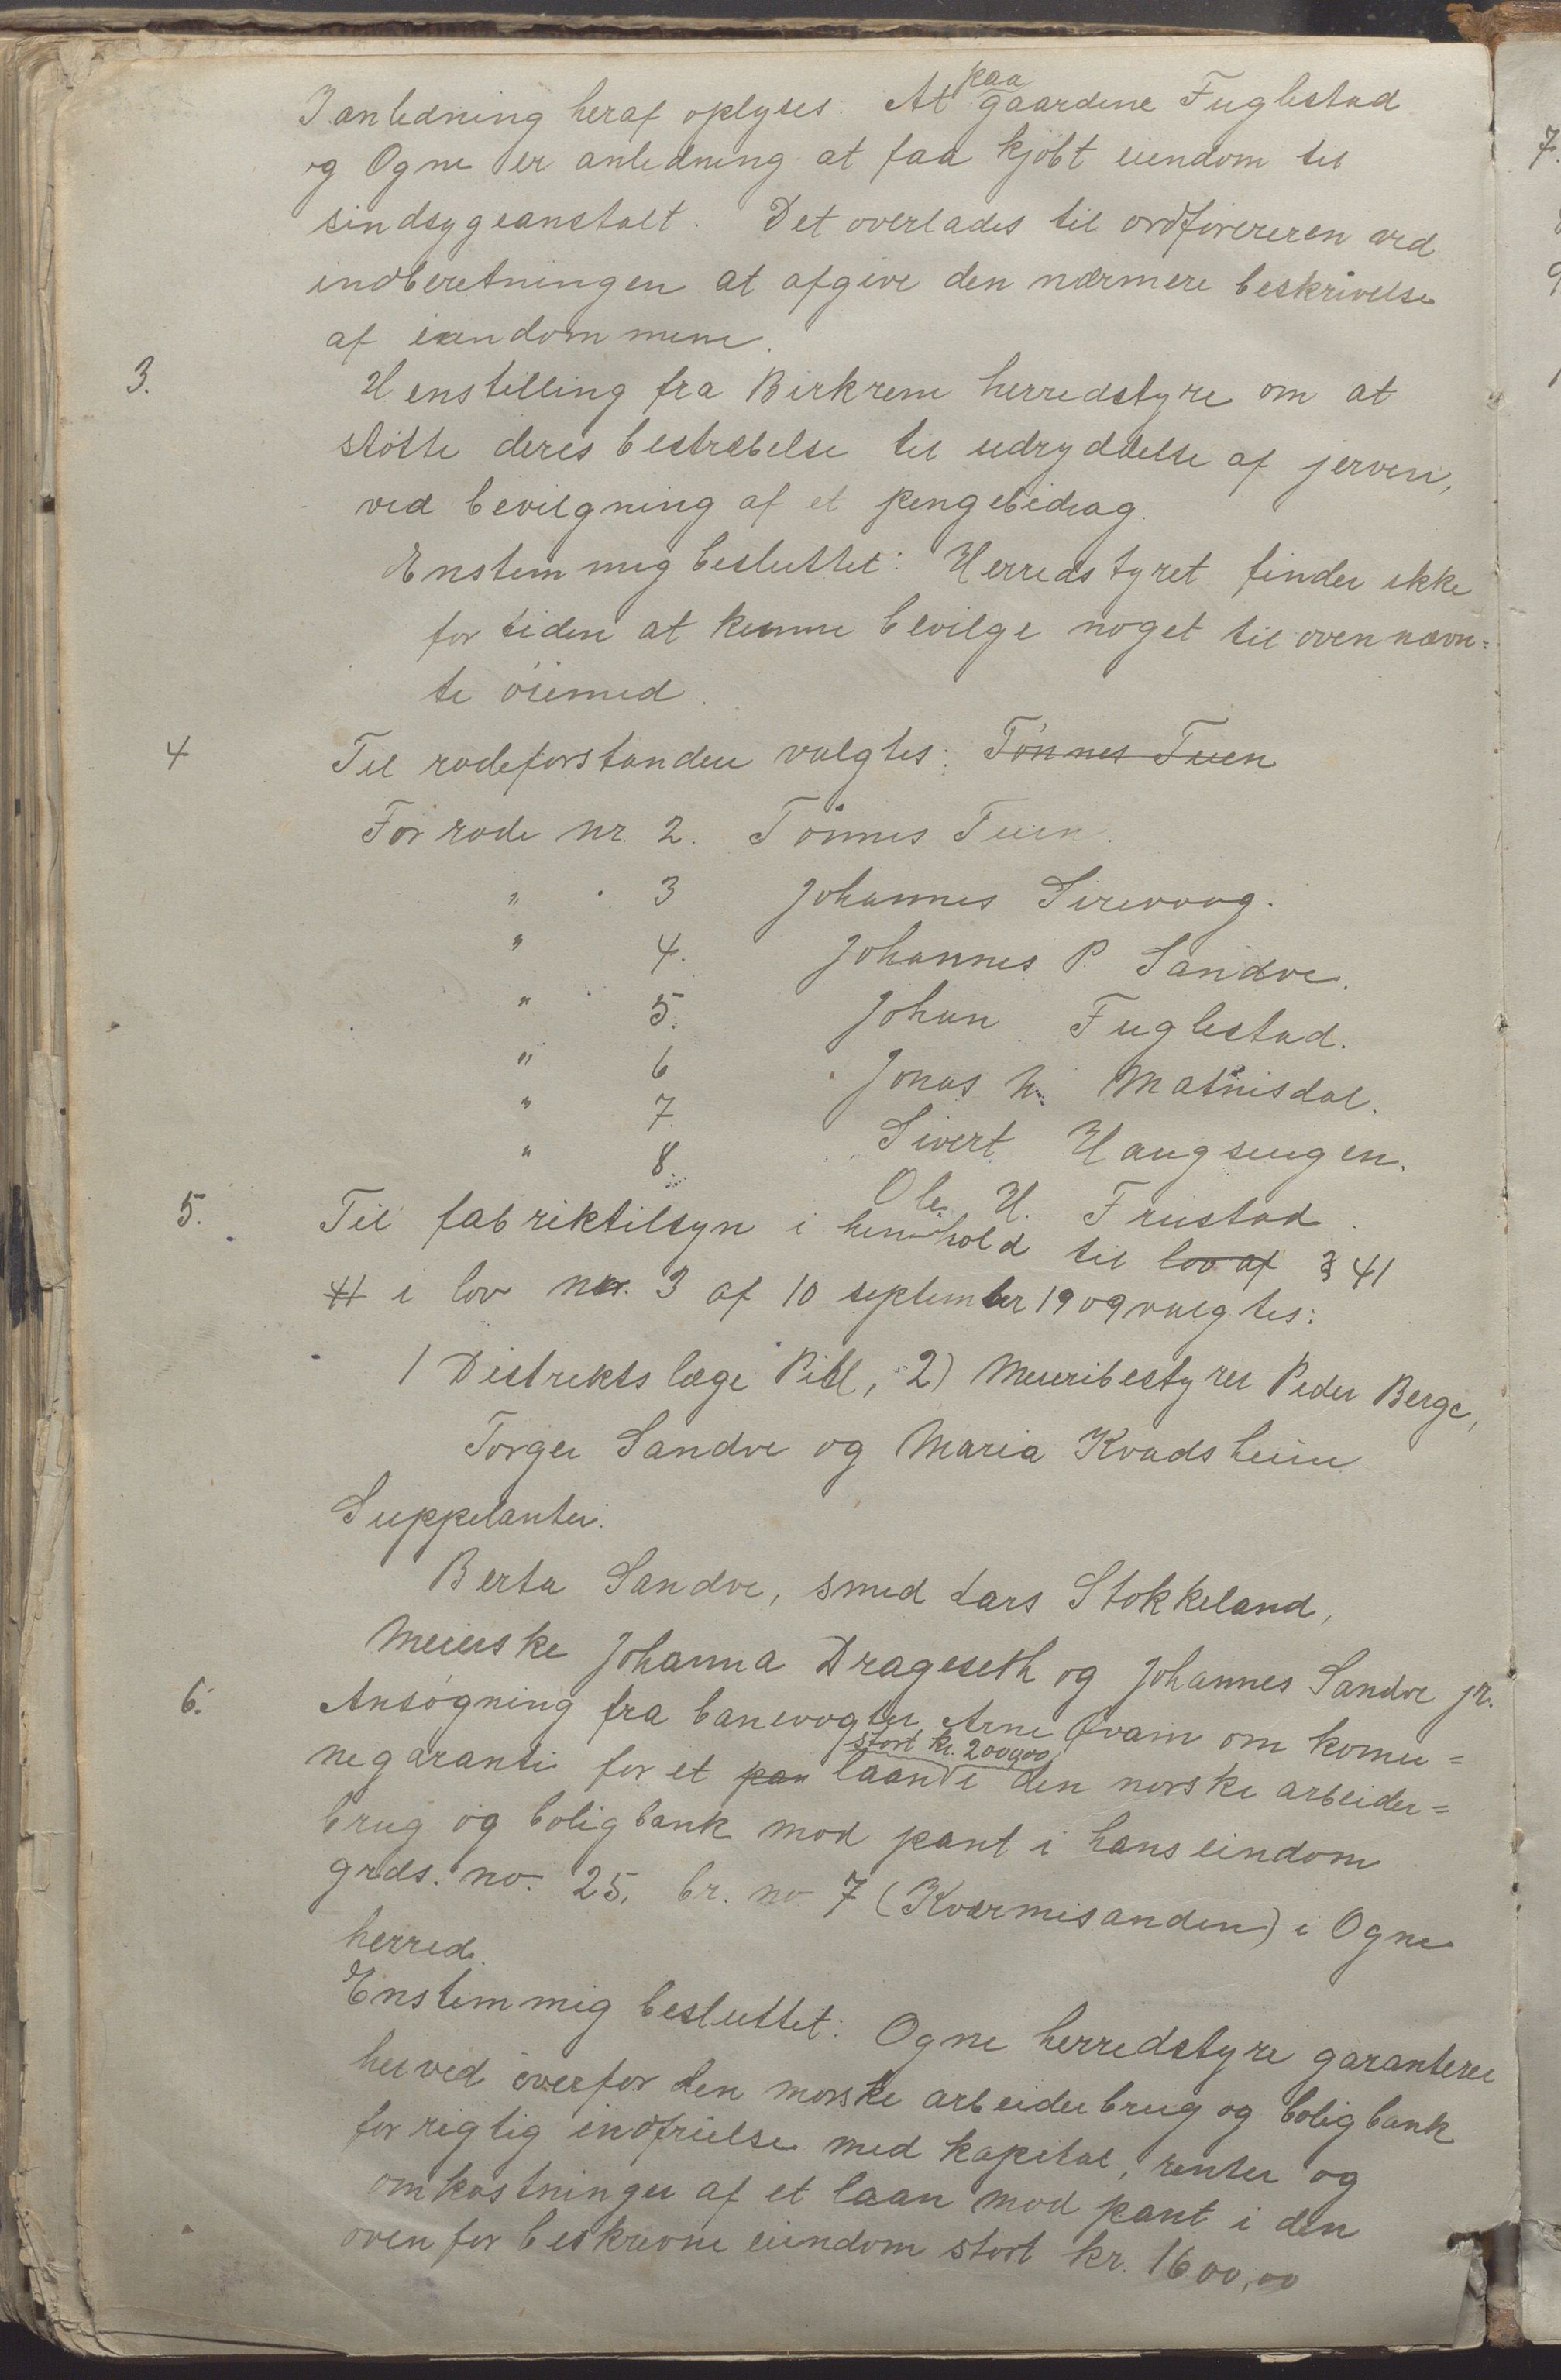 I anledning heraf oplyses: At paa gaardene Fuglestad
og Ogne er anledning at faa kjöbt eiendom til
sindsygeanstalt. Det overlades til ordföreren ved
indberetningen at afgive den nærmere beskrivelse
af eiendommene.
3. Henstilling fra Birkrem herredstyre om at
stötte deres bestræbelse til udryddelse af jerven,
ved bevilgning af et pengebidrag.
Enstemmig besluttet: Herredstyret finder ikke
for tiden at kunne bevilge noget til ovennævn=
te öiemed.
4 Til rodeforstander valgtes: Tönnes Tuen
For rode nr. 2. Tönnes Tuen.
" " 3 Johannes Sirevaag.
" 4. Johannes P. Sandve.
" " 5. Johan Fuglestad.
" 6 Jonas H. Matnisdal.
" 7 Sivert Haugsengen.
" 8. Ole H. Frustad.
5. Til fabriktilsyn i henhold til lov af § 41
41 i lov nr. 3 af 10 september 1909 valgtes:
1 Distriktslæge Pihl, 2) Meieribestyrer Peder Berge,
Torger Sandve og Maria Kvadsheim
Suppelanter:
Berta Sandve, smed Lars Stokkeland,
Meierske Johanna Drageseth og Johannes Sandve jr.
6. Ansögning fra banevogter Arne Kvam om komu=
negaranti for et paa laan stort kr. 2000,00 i den norske arbeider=
brug og boligbank mod pant i hans eindom
grds. no. 25, br. no 7 (Kværmisanden) i Ogne
herred.
Enstemmig besluttet: Ogne herredstyre garanterer
herved overfor den norske arbeiderbrug og boligbank
for rigtig indfrielse med kapital, renter og
omkostninger af et laan mod pant i den
ovenfor beskrevne eiendom stort kr. 1600,00
7.